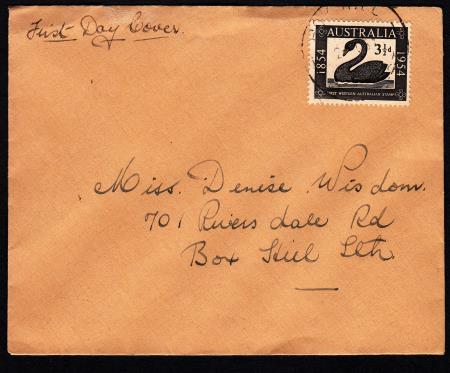 First Day Cover.
AUSTRALIA
1854
3½d
1954
FIRST WESTERN AUSTRALIAN STAMP
Miss. Denise Wisdom.
701 Riversdale Rd
Box Hill Sth.